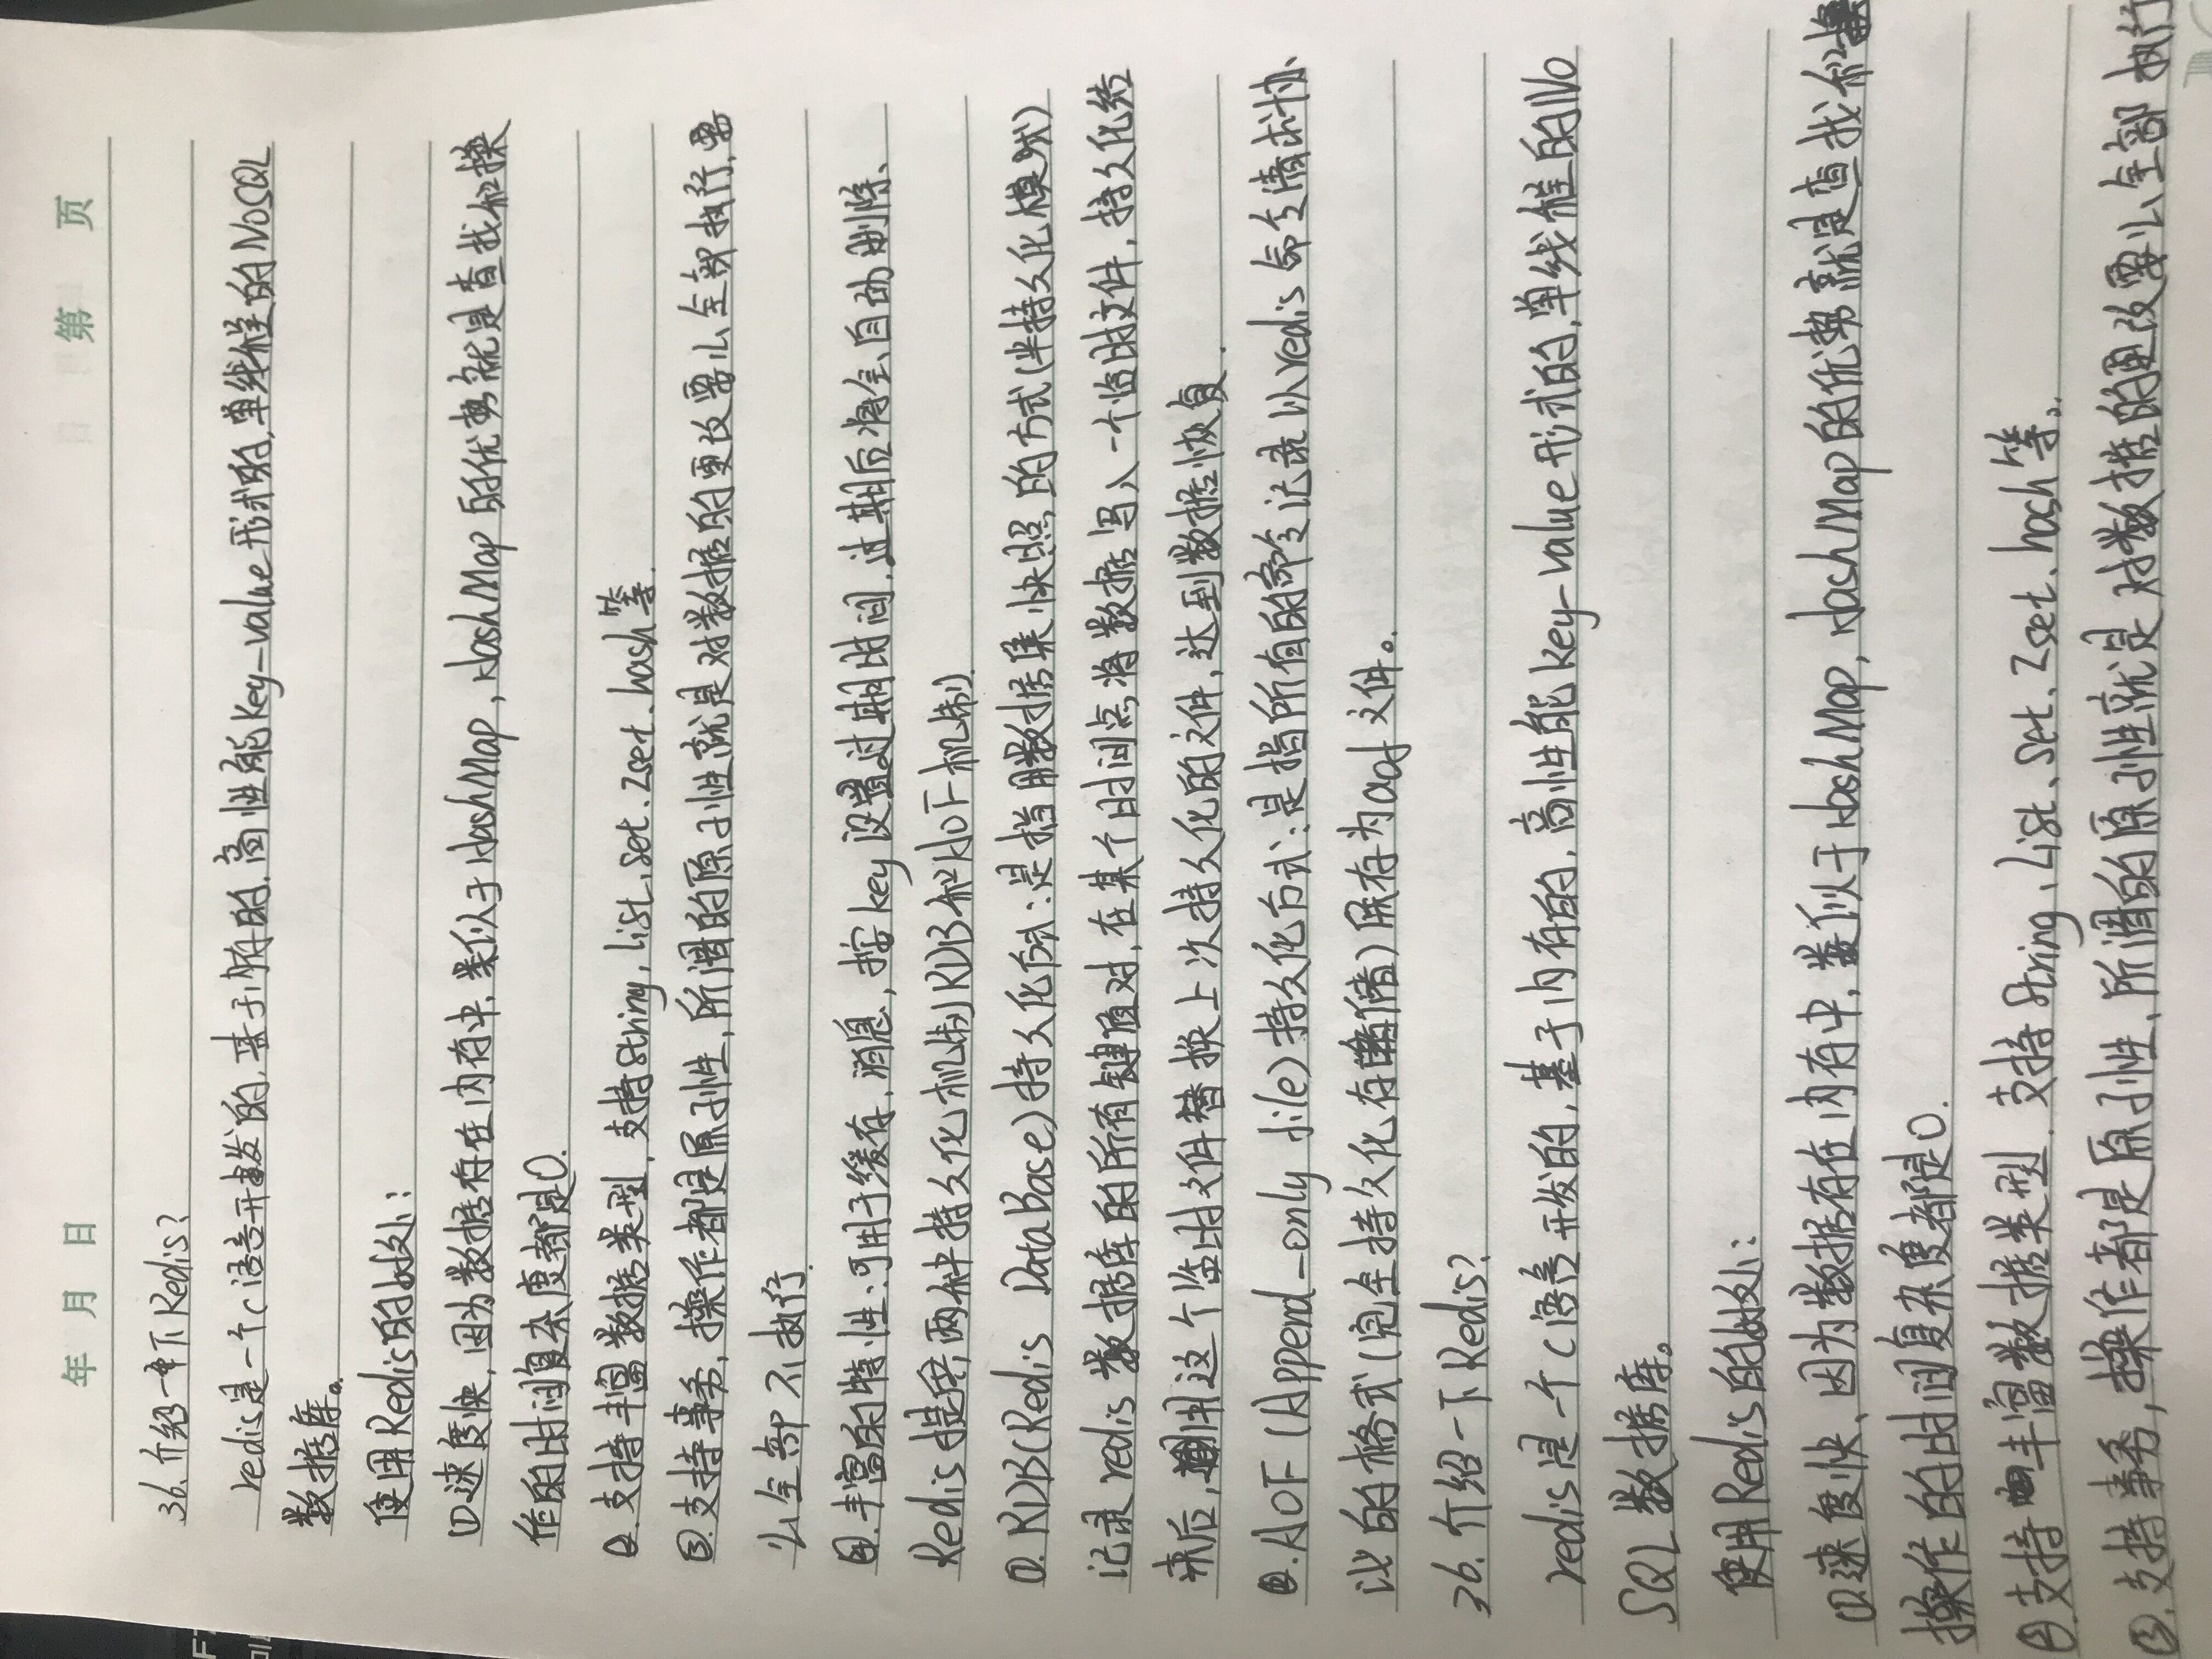 年 月 日 第 页
36、介绍一下Redis?
redis是一个c语言开发的,基于内存的,高性能key-value形式的,单线程的NoSQL
数据库。
使用Redis的好处:
①.速度快,因为数据存在内存中,类似于HashMap,HashMap的优势就是查找和操
作的时间复杂度都是O.
②.支持丰富数据类型,支持string,list、set、zset、hash等.
③.支持事务,操作都是原子性,所谓的原子性就是对数据的更改要么全部执行,要
么全部不执行.
④.丰富的特性:可用于缓存,消息,按key设置过期时间,过期后将会自动删除、
Redis提供两种持久化机制RDB和AOF机制.
①.RDB(Redis DataBase)持久化方式:是指用数据集快照的方式(半持久化模式)
记录redis数据库的所有键值对,在某个时间点将数据写入一个临时文件,持久化结
束后,用这个临时文件替换上次持久化的文件,达到数据恢复.
②.AOF(Append-only file)持久化方式:是指所有的命令记录以redis命令请求协
议的格式(完全持久化存储)保存为aof文件。
36、介绍一下Redis?
redis是一个c语言开发的,基于内存的,高性能key-value形式的,单线程的No
SQL数据库。
使用Redis的好处:
①.速度快、因为数据存在内存中,类似于HashMap,HashMap的优势就是查找和
操作的时间复杂度都是O.
②.支持丰富数据类型.支持string、List、set、zset、hash等。
③.支持事务,操作都是原子性、所谓的原子性就是对数据的更改要么全部执行